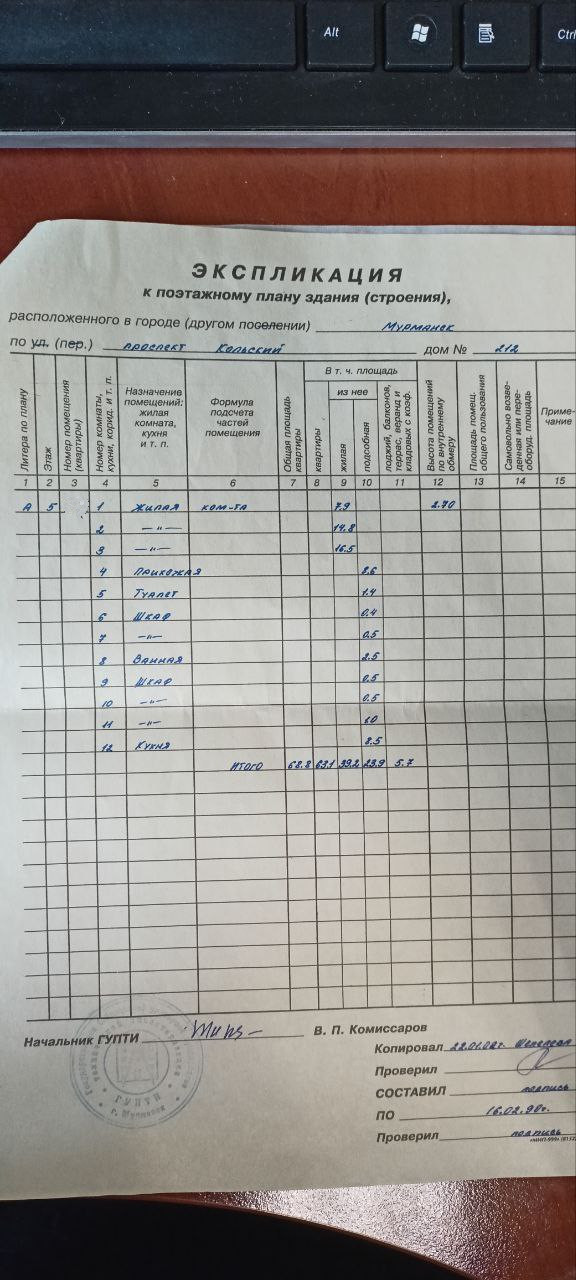 Alt
Ctrl
ЭКСПЛИКАЦИЯ
к поэтажному плану здания (строения),
расположенного в городе (другом поселении) Мурманск
по ул. (пер.) проспект Кольский дом № 212
Литера по плану
Этаж
Номер помещения (квартиры)
Номер комнаты, кухни, корид. и т. п.
Назначение помещений: жилая комната, кухня и т. п.
Формула подсчета частей помещения
Общая площадь квартиры
В т. ч. площадь
квартиры
из нее
жилая
подсобная
лоджий, балконов, террас, веранд и кладовых с коэф.
Высота помещений по внутреннему обмеру
Площадь помещ. общего пользования
Самовольно возведенная или переоборуд. площадь
Примечание
1 2 3 4 5 6 7 8 9 10 11 12 13 14 15
А 5 1 Жилая ком-та 7.9 2.70
2 —"— 14.8
3 —"— 16.5
4 Прихожая 8.6
5 Туалет 1.4
6 Шкаф 0.4
7 —"— 0.5
8 Ванная 2.5
9 Шкаф 0.5
10 —"— 0.5
11 —"— 1.0
12 Кухня 8.5
Итого 68.8 63.1 39.2 23.9 5.7
Начальник ГУПТИ В. П. Комиссаров
ГУПТИ
г. Мурманск
Копировал 22.01.02г.
Проверил
СОСТАВИЛ подпись
ПО 16.02.90г.
Проверил подпись